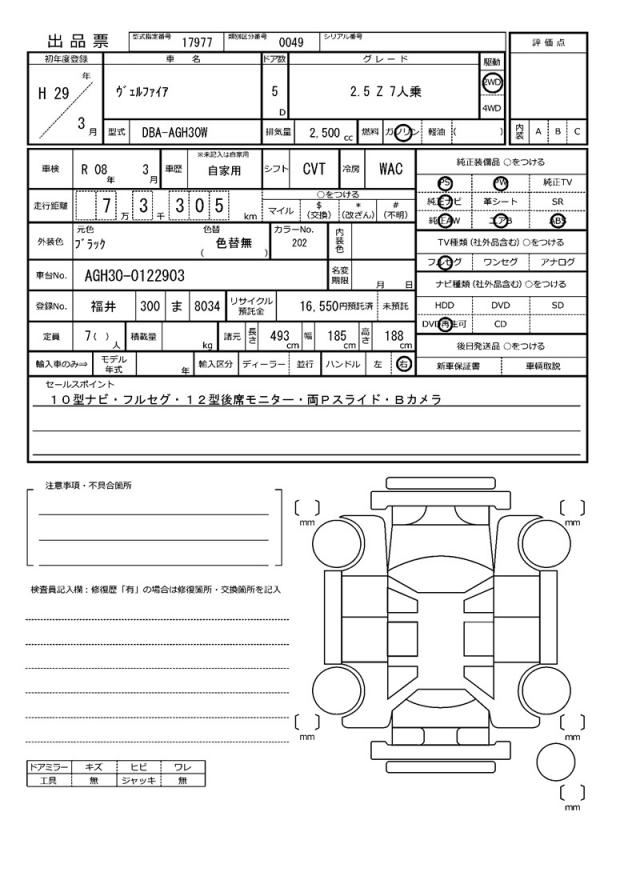 出品票 型式指定番号 17977 類別区分番号 0049 シリアル番号
評価点
初年度登録 車名 ドア数 グレード 駆動
H 29 年 3 月 ヴェルファイア 5 D 2.5 Z 7人乗 2WD 4WD
型式 DBA-AGH30W 排気量 2,500 cc 燃料 ガソリン 軽油 ( ) 内装 A B C
車検 R 08 年 3 月 車歴 ※未記入は自家用 自家用 シフト CVT 冷房 WAC
純正装備品 ○をつける
PS PW 純正TV
純正ナビ 革シート SR
純正AW エアB ABS
走行距離 7 万 3 千 3 0 5 km ○をつける
マイル $ (交換) * (改ざん) # (不明)
TV種類 (社外品含む) ○をつける
フルセグ ワンセグ アナログ
外装色 元色 ブラック 色替 ( 色替無 ) カラーNo. 202 内装色
車台No. AGH30-0122903 名変期限 月 日
ナビ種類 (社外品含む) ○をつける
HDD DVD SD
DVD再生可 CD
登録No. 福井 300 ま 8034 リサイクル預託金 16,550円預託済 未預託
定員 7 ( ) 人 積載量 kg 諸元 長さ 493 cm 幅 185 cm 高さ 188 cm
後日発送品 ○をつける
新車保証書 車輌取説
輸入車のみ⇒ モデル年式 年 輸入区分 ディーラー 並行 ハンドル 左 右
セールスポイント
10型ナビ・フルセグ・12型後席モニター・両Pスライド・Bカメラ
注意事項・不具合箇所
検査員記入欄：修復歴「有」の場合は修復箇所・交換箇所を記入
mm
mm
mm
mm
mm
ドアミラー キズ ヒビ ワレ
工具 無 ジャッキ 無